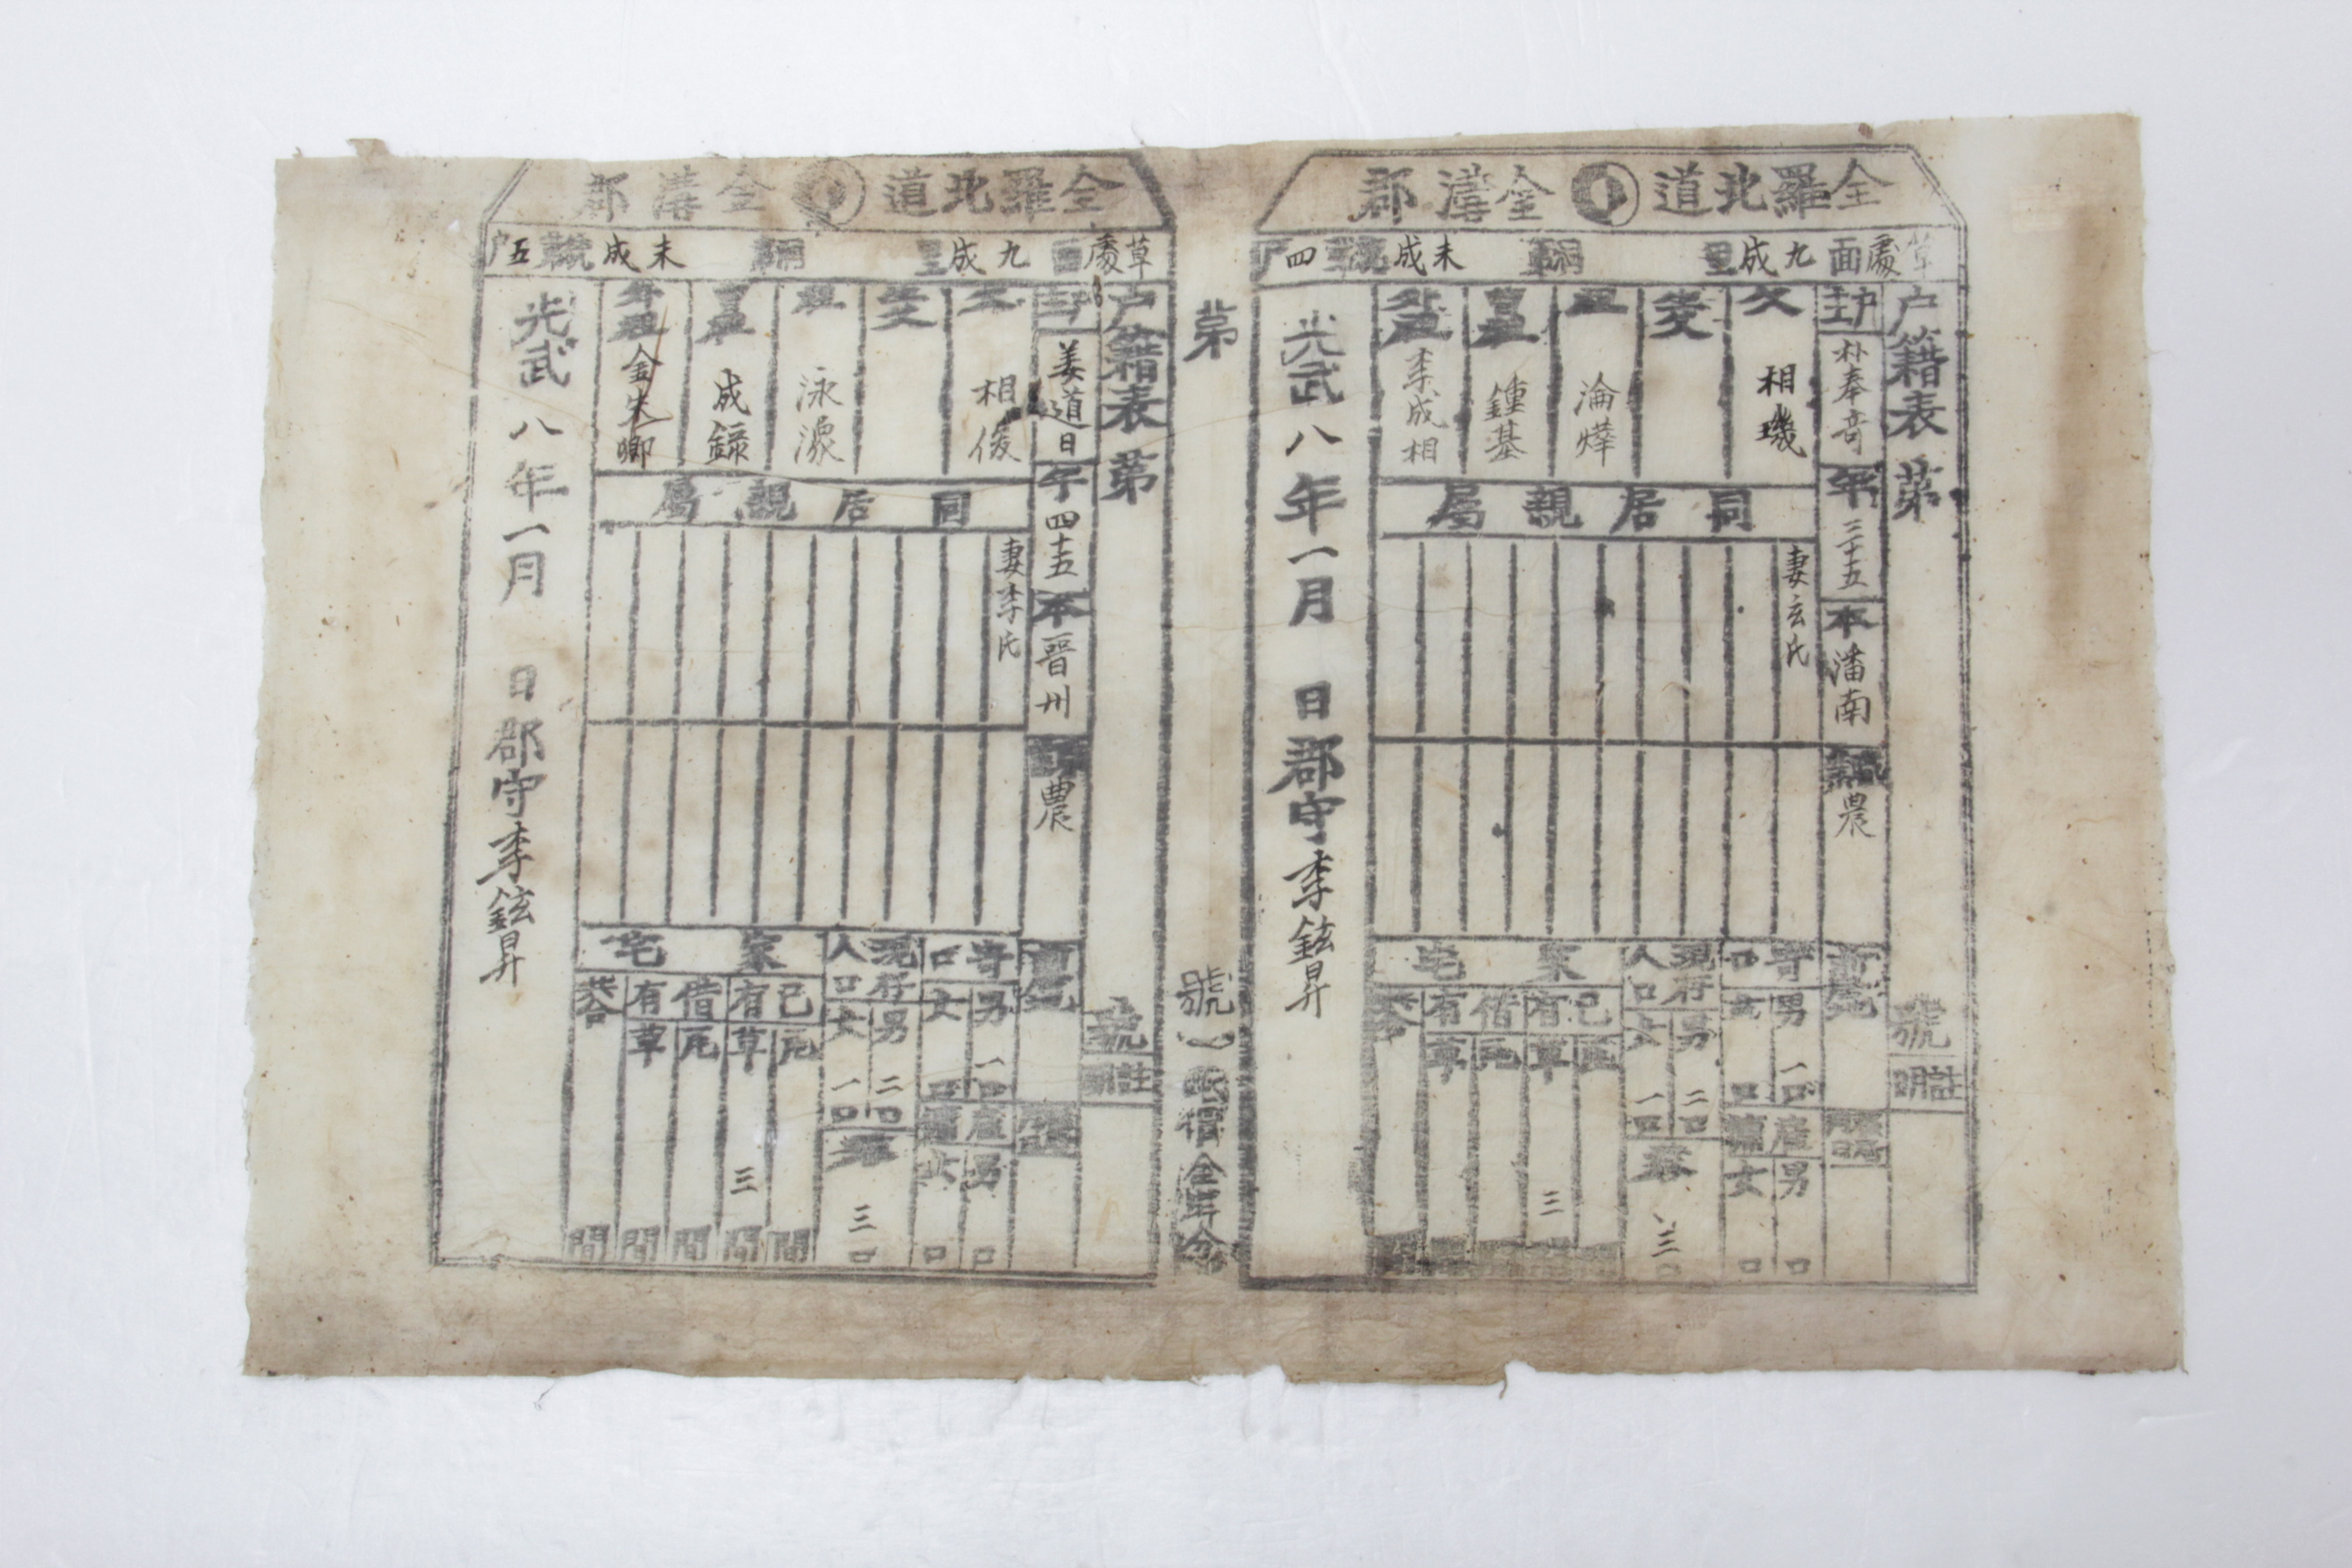 全羅北道 金溝郡
草處面 九成里 統 未成 號 四戶
戶籍表 第 號
註明
戶主 朴奉奇
年 三十五
本 潘南
職 農
父 相璣
生父
祖 淪燁
曾祖 鍾基
外祖 李成相
同居親屬
妻玄氏
寄口 男 一口 女 口
現存人口 男 二口 女 一口
共 三口
產 男 口 女 口
家宅
己有 瓦 草 三
借有 瓦 草
共合
光武八年一月 日 郡守 李鉉昇
第 號
全羅北道 金溝郡
草處面 九成里 統 未成 號 五戶
戶籍表 第 號
註明
戶主 姜道日
年 四十五
本 晋州
職 農
父 相俊
生父
祖 泳源
曾祖 成錄
外祖 金先卿
同居親屬
妻李氏
寄口 男 一口 女 口
現存人口 男 二口 女 一口
共 三口
產 男 口 女 口
家宅
己有 瓦 間 草 三間
借有 瓦 間 草 間
共合 間
光武八年一月 日 郡守 李鉉昇